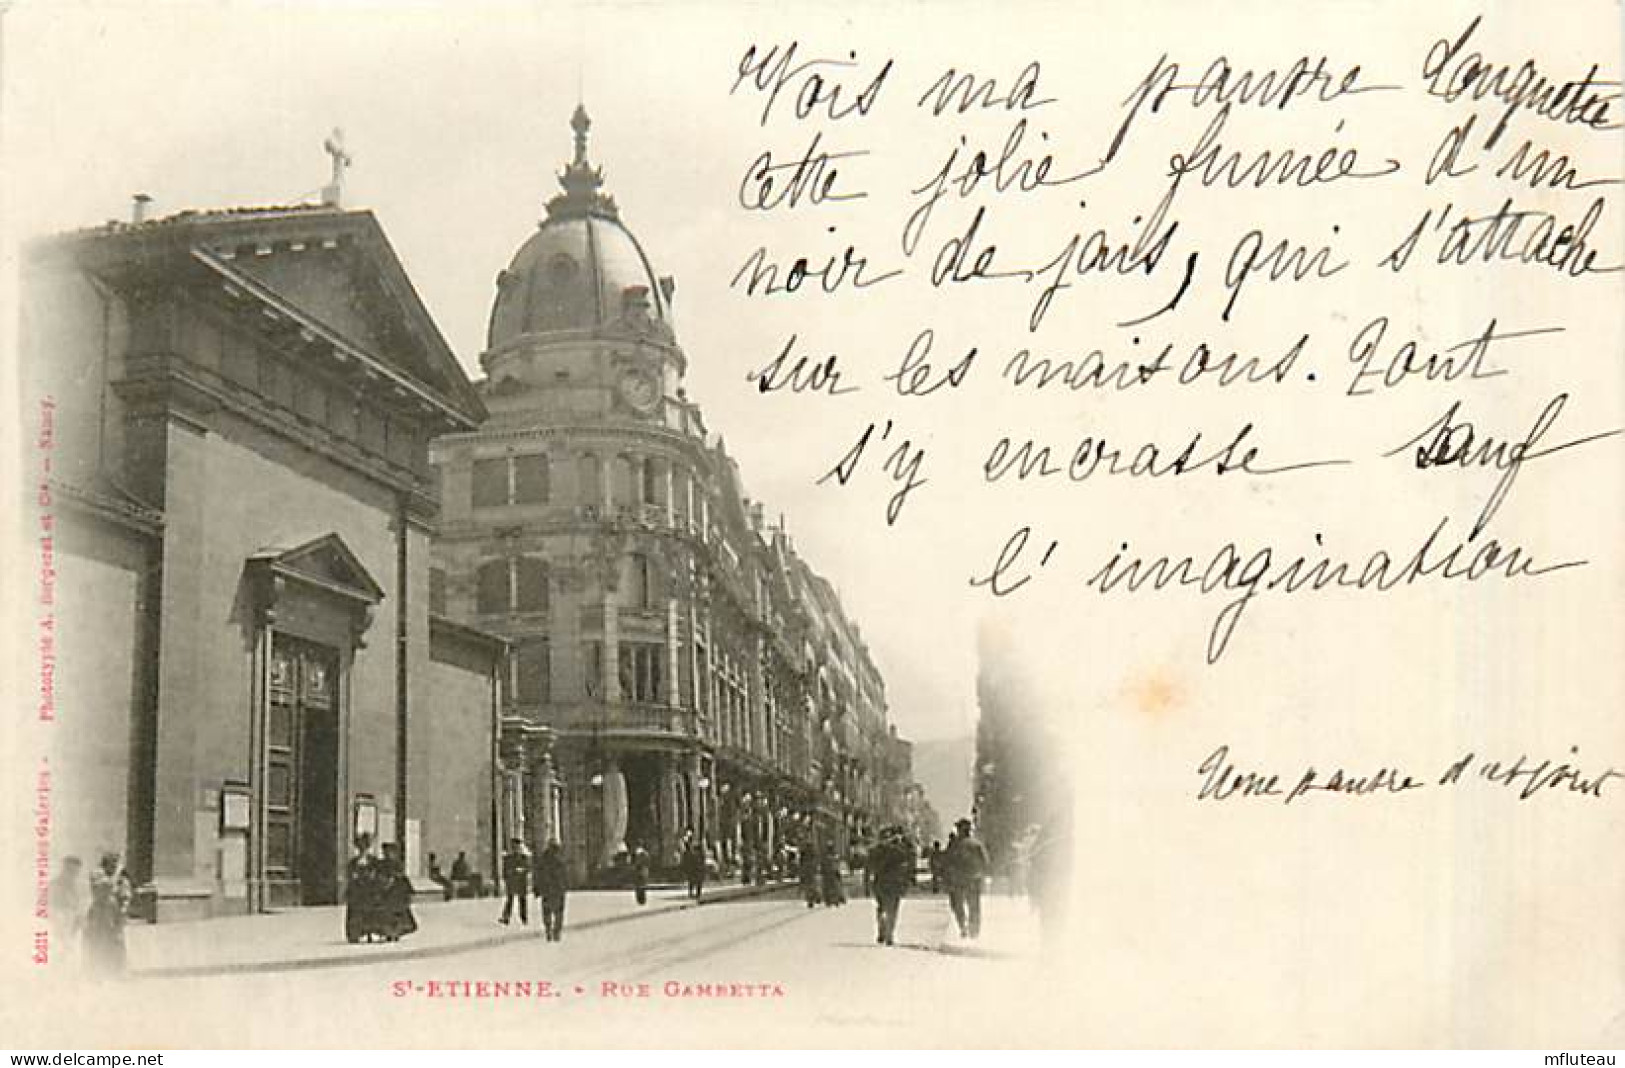 Vois ma pauvre Louquette
cette jolie fumée d'un
noir de jais, qui s'attache
sur les maisons. Tout
s'y encrasse sauf
l'imagination
pauvre
Édit Nouvelles Galeries - Phototypie A. Bergeret et Cie. — Nancy.
St-ETIENNE. - RUE GAMBETTA
www.delcampe.net
mfluteau